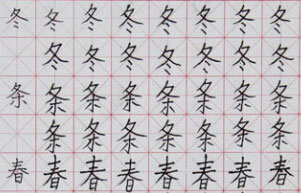 冬冬冬冬冬冬冬冬
冬冬冬冬冬冬冬
条条条条条条条条
条条条条条条条
春春春春春春春春